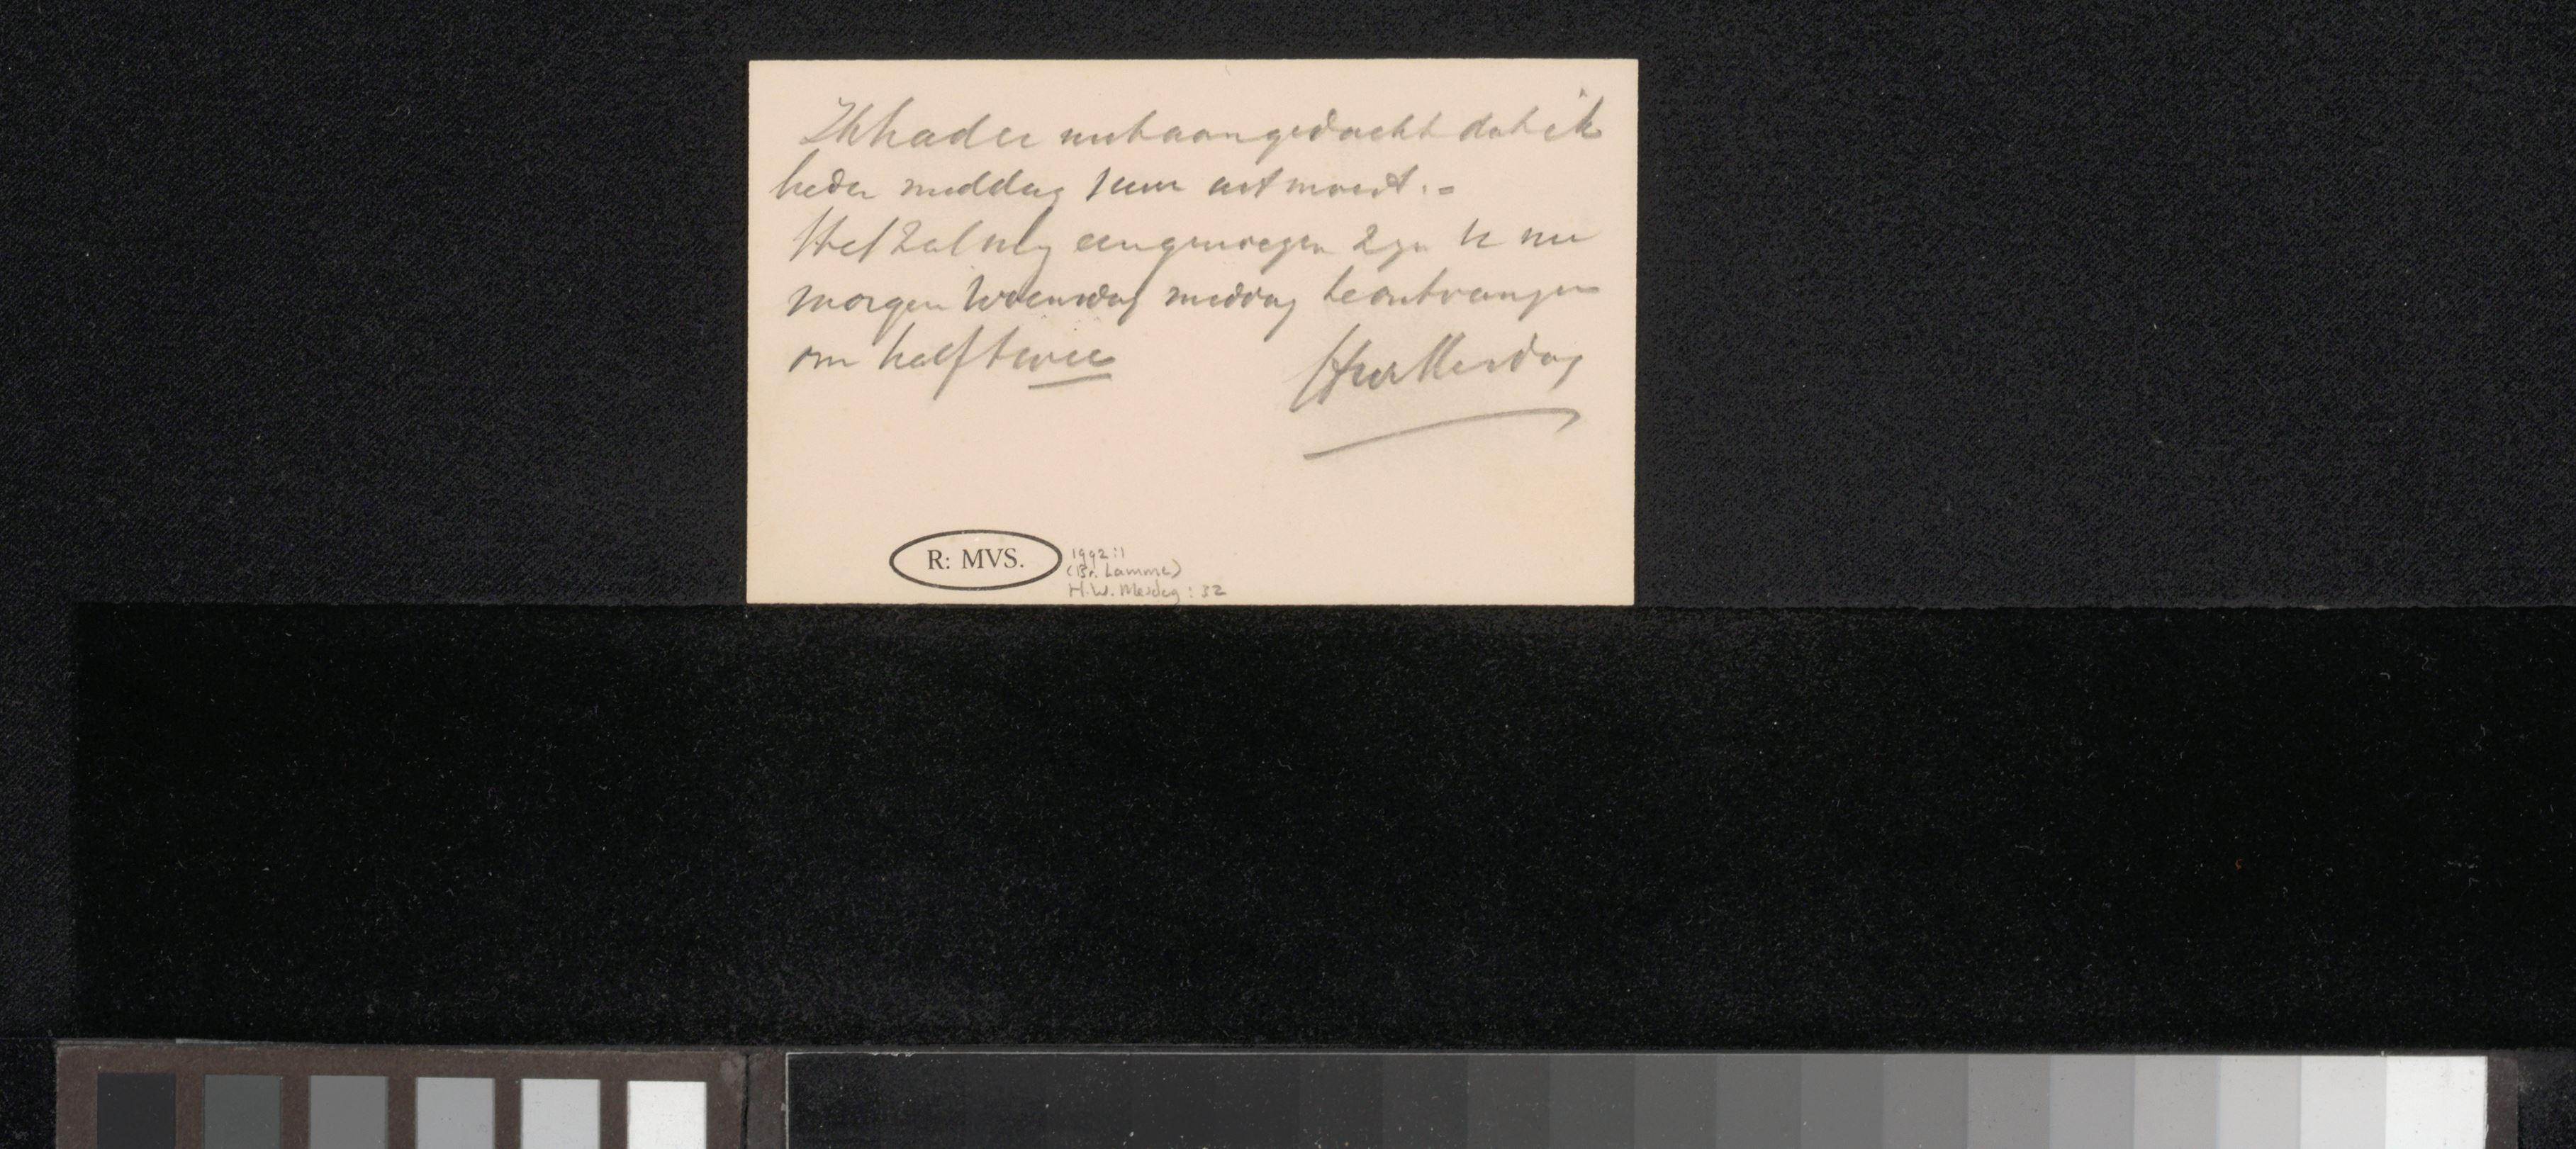 Ik had er niet aan gedacht dat ik
heden middag 1 uur uit moest. =
Het zal mij een genoegen zijn U nu
morgen Woensdag middag te ontvangen
om half twee
HWMesdag
R: MVS.
1992:1
(Br. Lamme)
H.W. Mesdag: 32